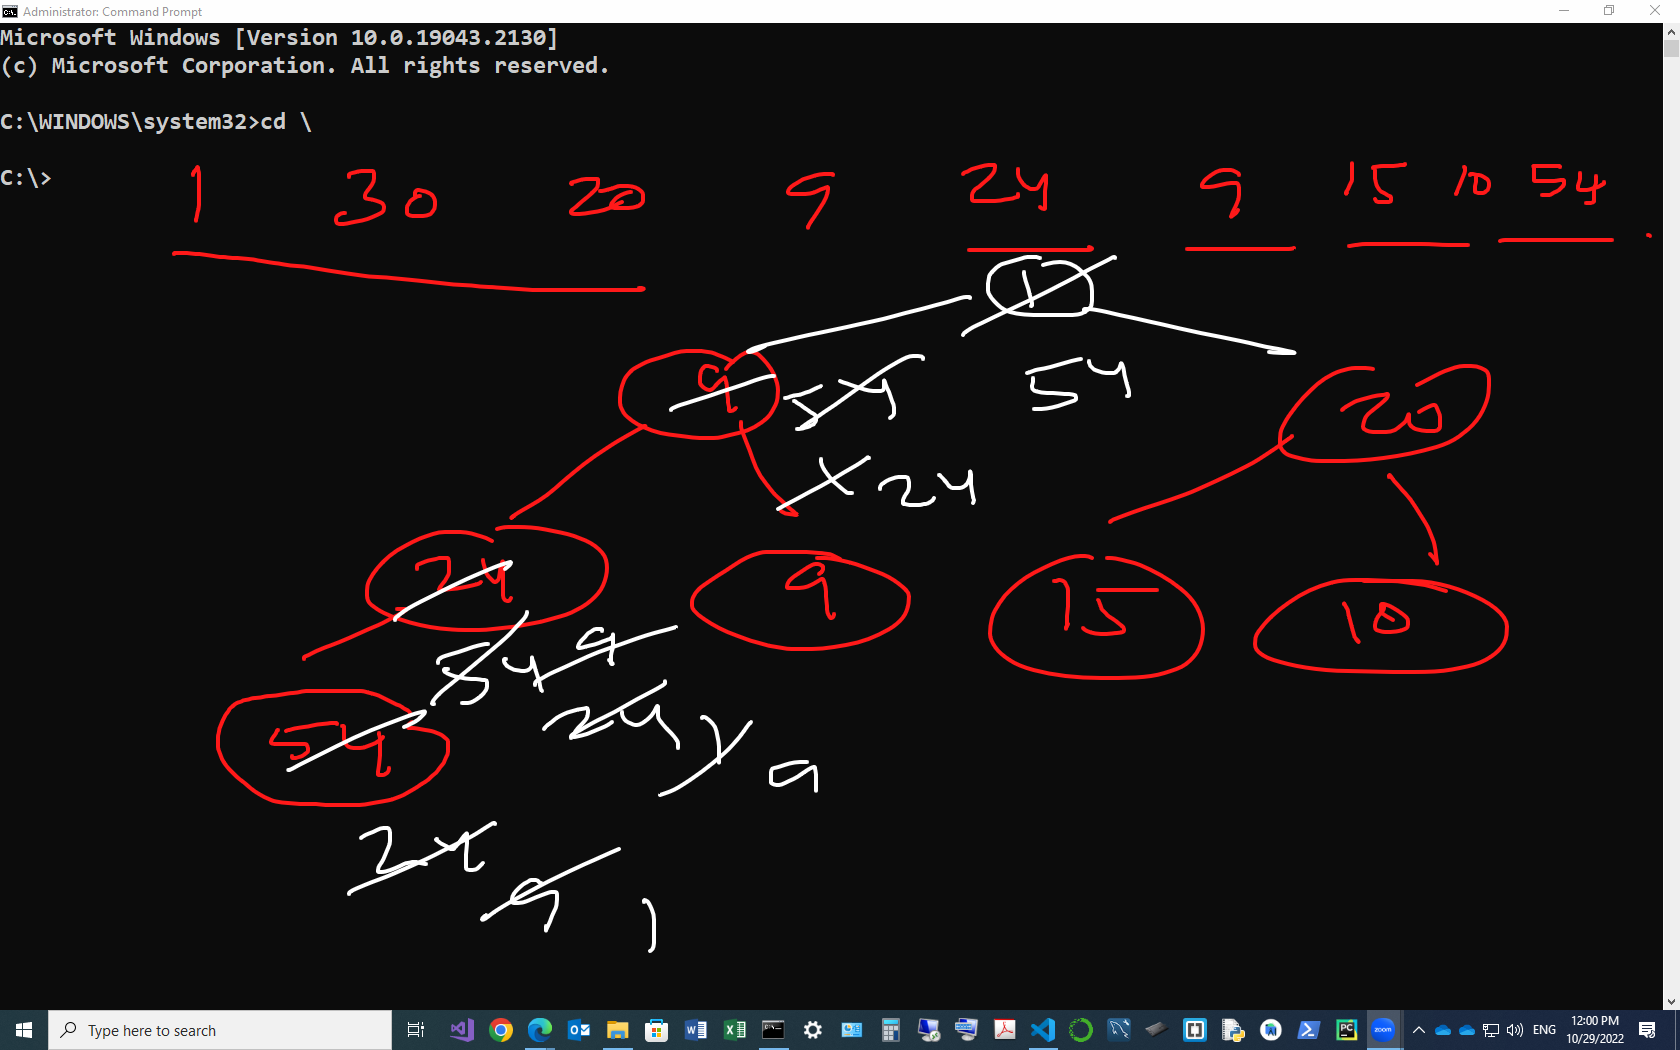 Administrator: Command Prompt
Microsoft Windows [Version 10.0.19043.2130]
(c) Microsoft Corporation. All rights reserved.
C:\WINDOWS\system32>cd \
C:\>
1 30 20 9 24 9 15 10 54 .
1
9 54 54 20
24
24 9 15 10
54 9
54 24 9
24
9 1
Type here to search
ENG
12:00 PM
10/29/2022